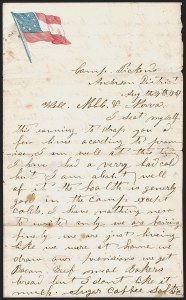 Camp Pickens
Anderson District
Aug the 9th 1861
Well. Mr. & Nova.
I seat myself
this evening to drop you a
few lines according to prom
I am well at this time
I have had a very bad cold
but I am about well
of it the health is generly
good in the camp except
colds. I have nothing new
to write only we are faring
fine if we cares just living
like we were at home we
draw our provisions we get
Bacon Beef smoal Bakers
bread but I dont like it
much. Sugar Coffee Salt